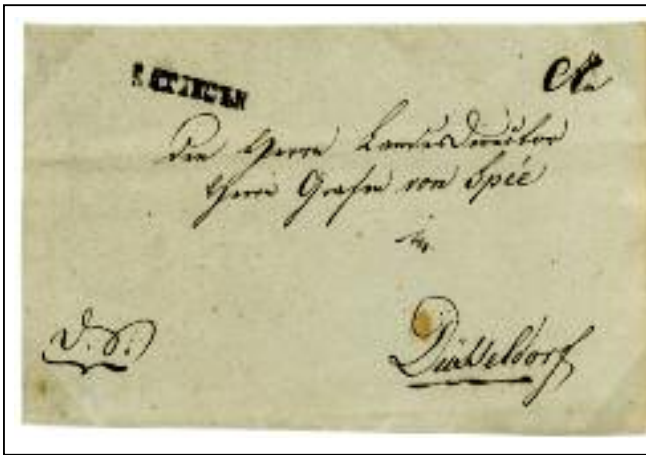 Den Herrn LandesDirector
Herrn Grafen von Spée
in
D. S.
Düsseldorf